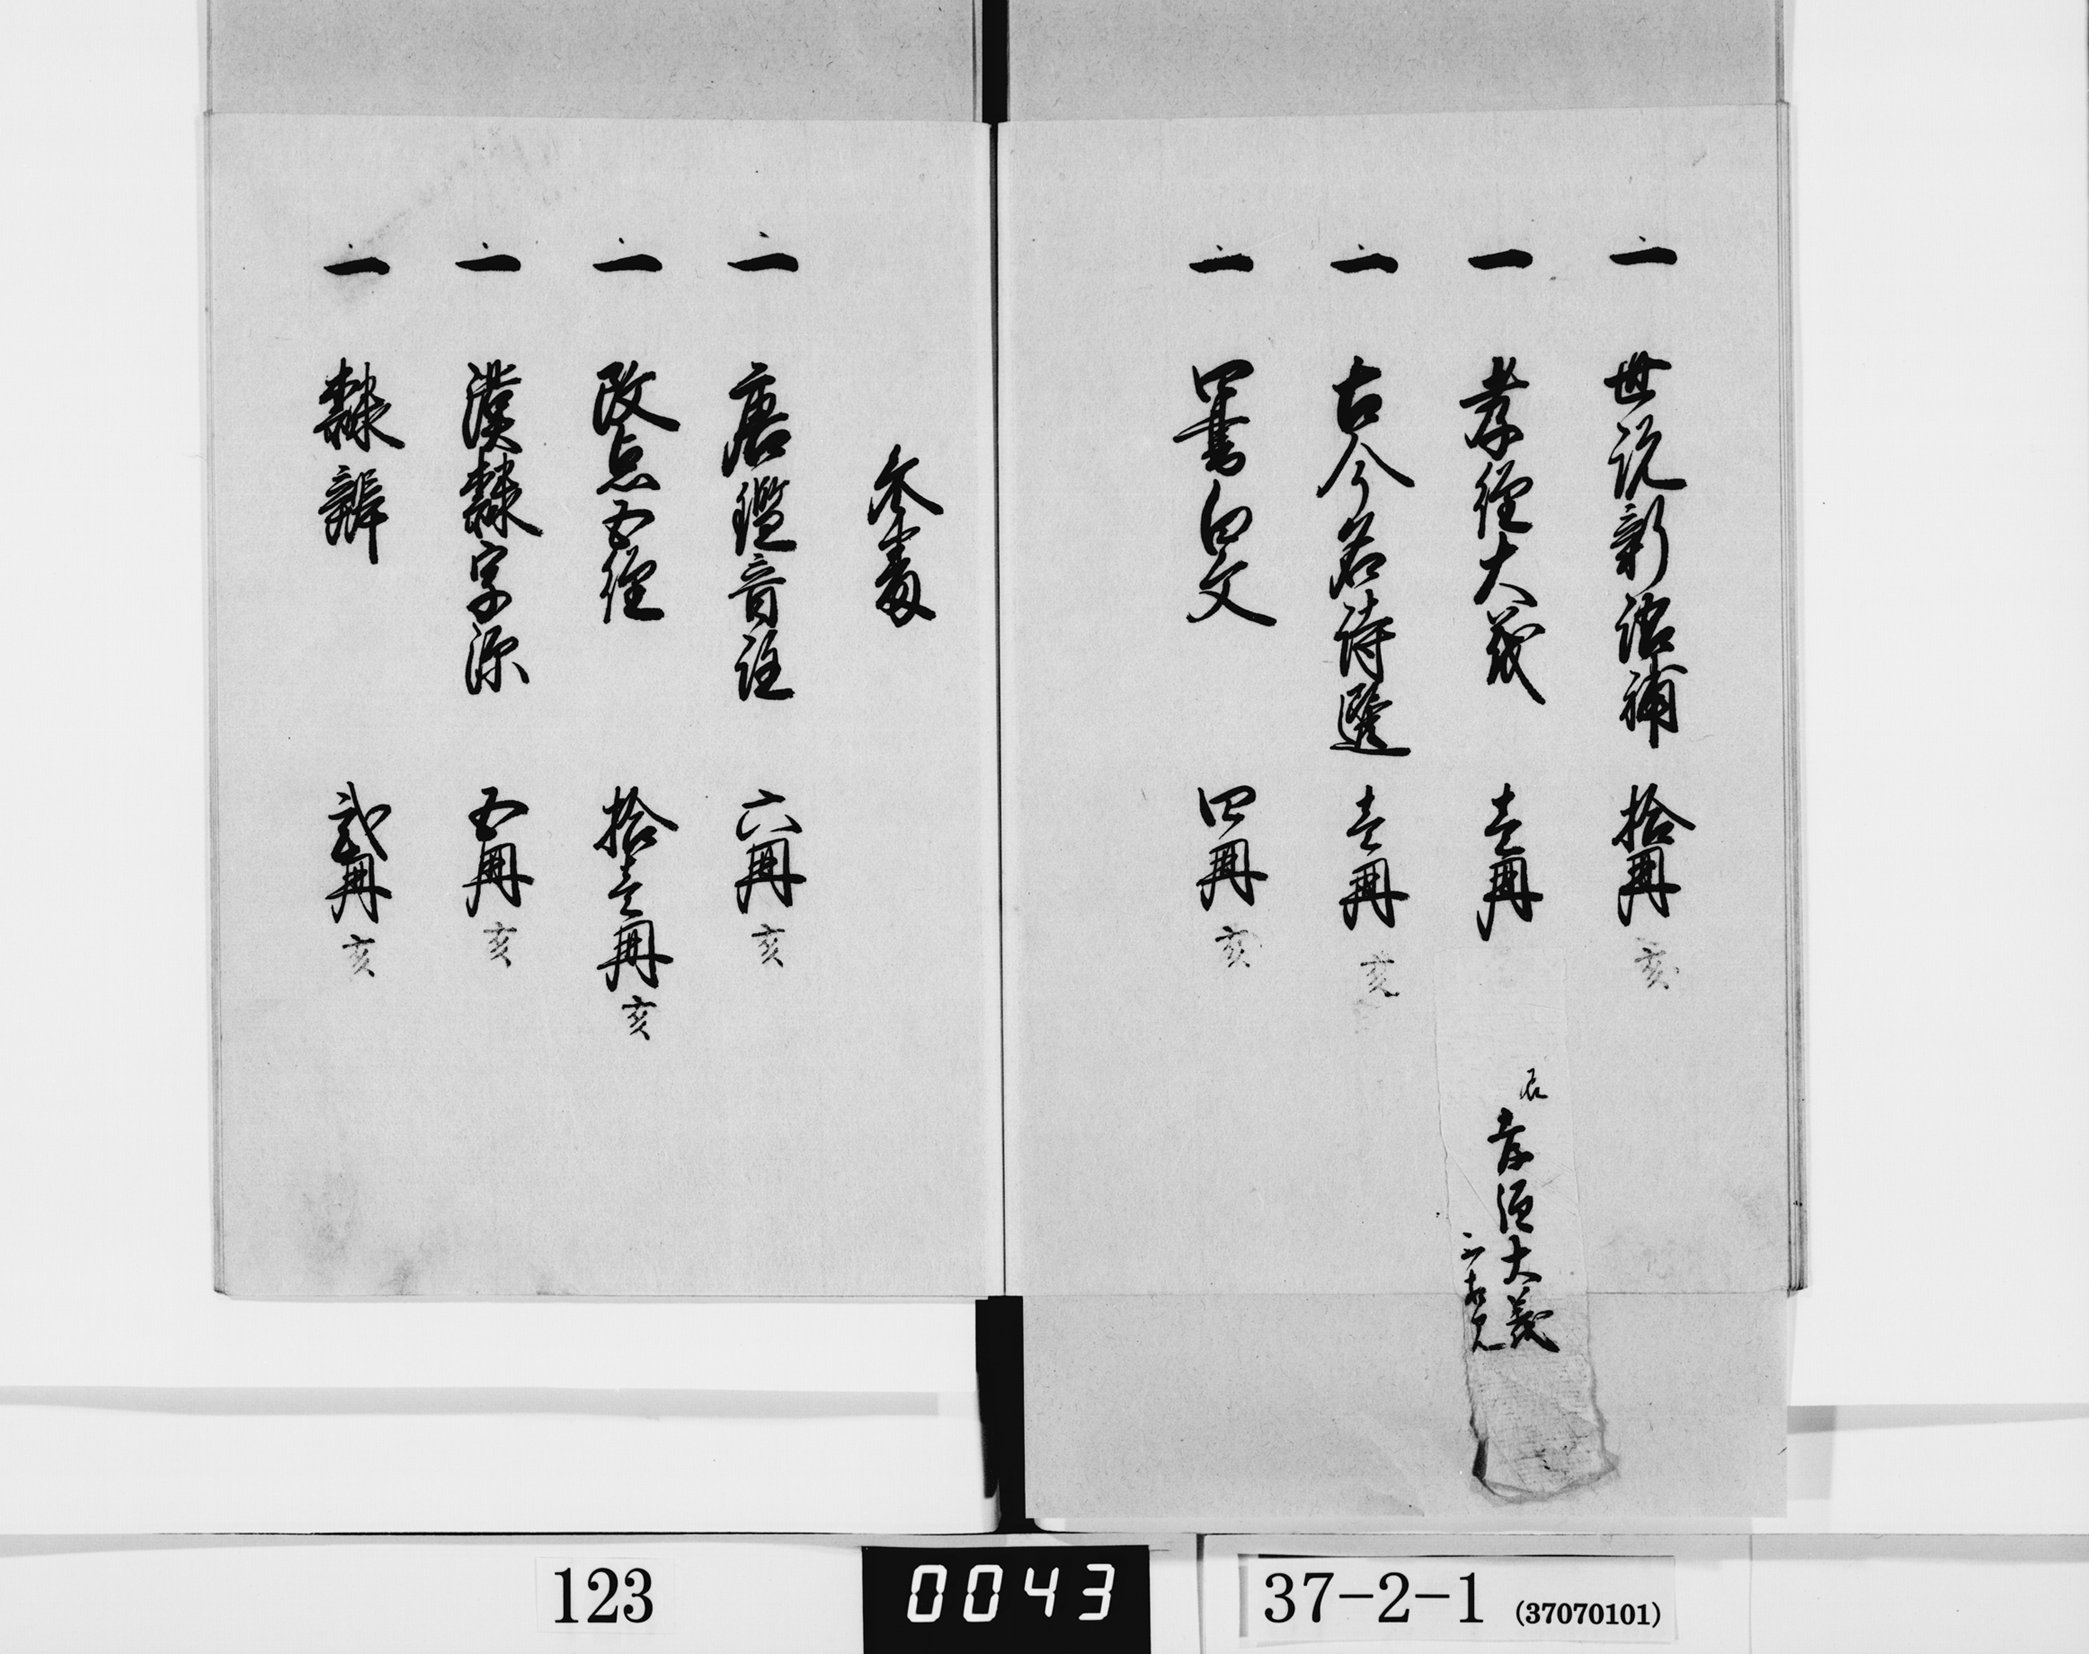 一 世説新語補 拾冊 亥
一 孝経大義 壱冊
孝経大義
一 古今名詩選 壱冊 亥
一 四書白文 四冊 亥
一 唐鑑音註 六冊 亥
一 改点五経 拾壱冊 亥
一 漢隷字源 五冊 亥
一 隷辨 弐冊 亥
123
0043
37-2-1 (37070101)